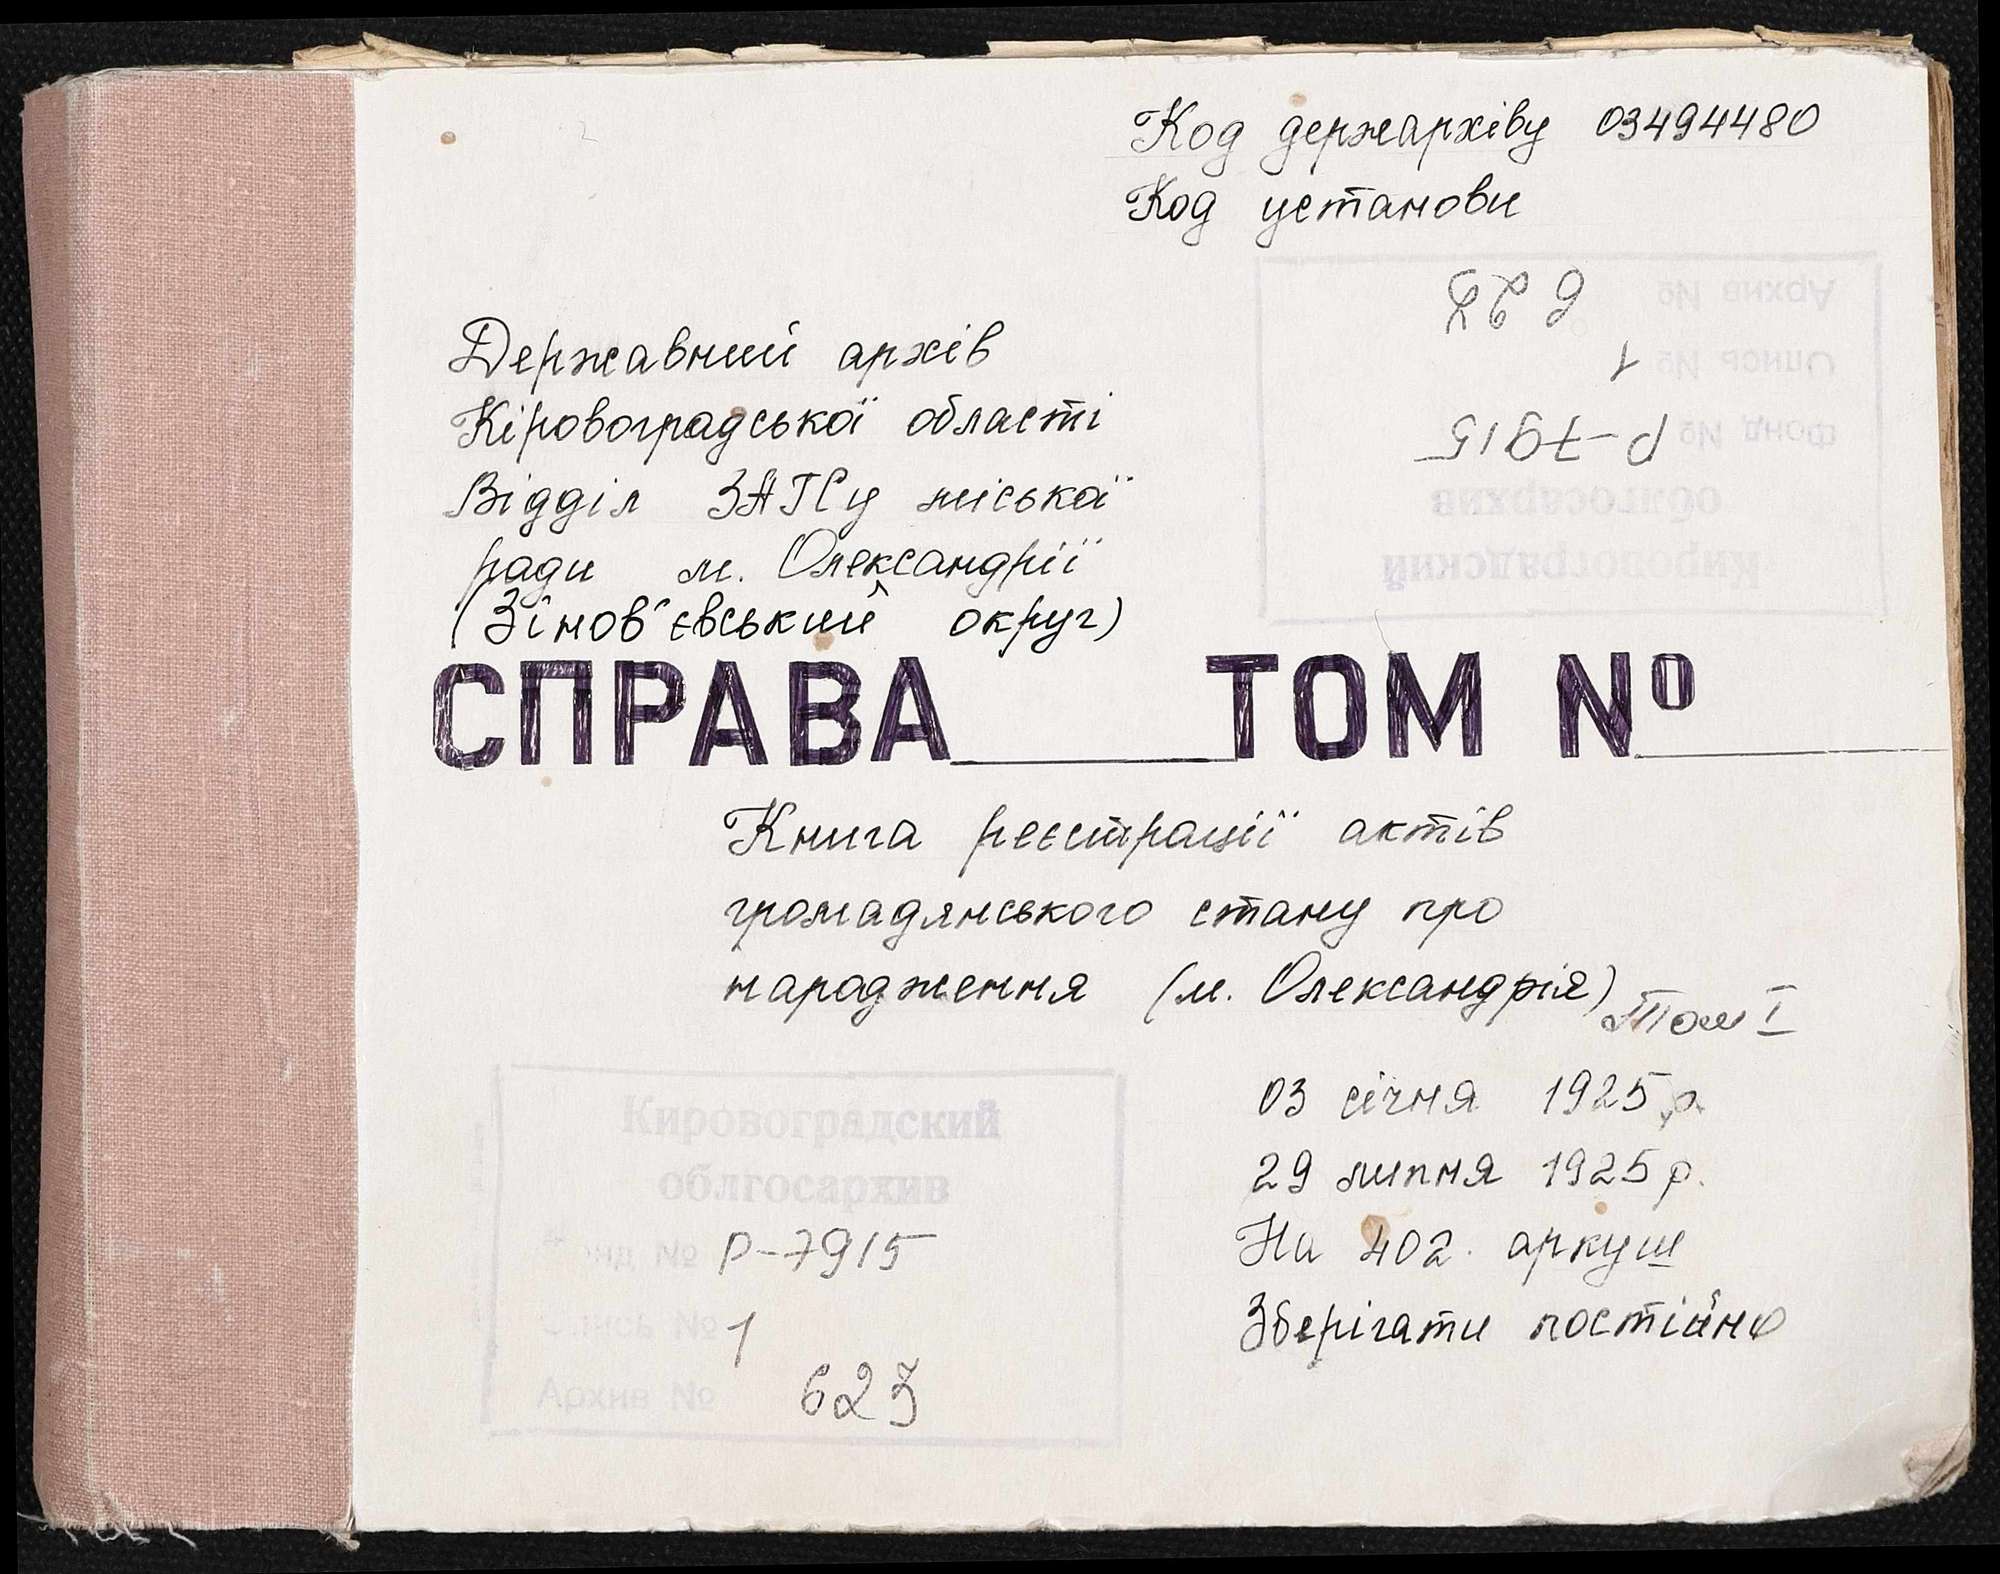 Код держархіву 03494480
Код установи
Архив № 623
Опись № 1
Фонд № Р-7915
облгосархив
Кировоградский
Державний архів
Кіровоградської області
Відділ ЗАГСу міської
ради м. Олександрії
(Зінов'євський округ)
СПРАВА ТОМ №
Книга реєстрації актів
громадянського стану про
народження (м. Олександрія)
Том I
03 січня 1925 р.
29 липня 1925 р.
На 402 аркуш
Зберігати постійно
Кировоградский
облгосархив
Фонд № Р-7915
Опись № 1
Архив № 623